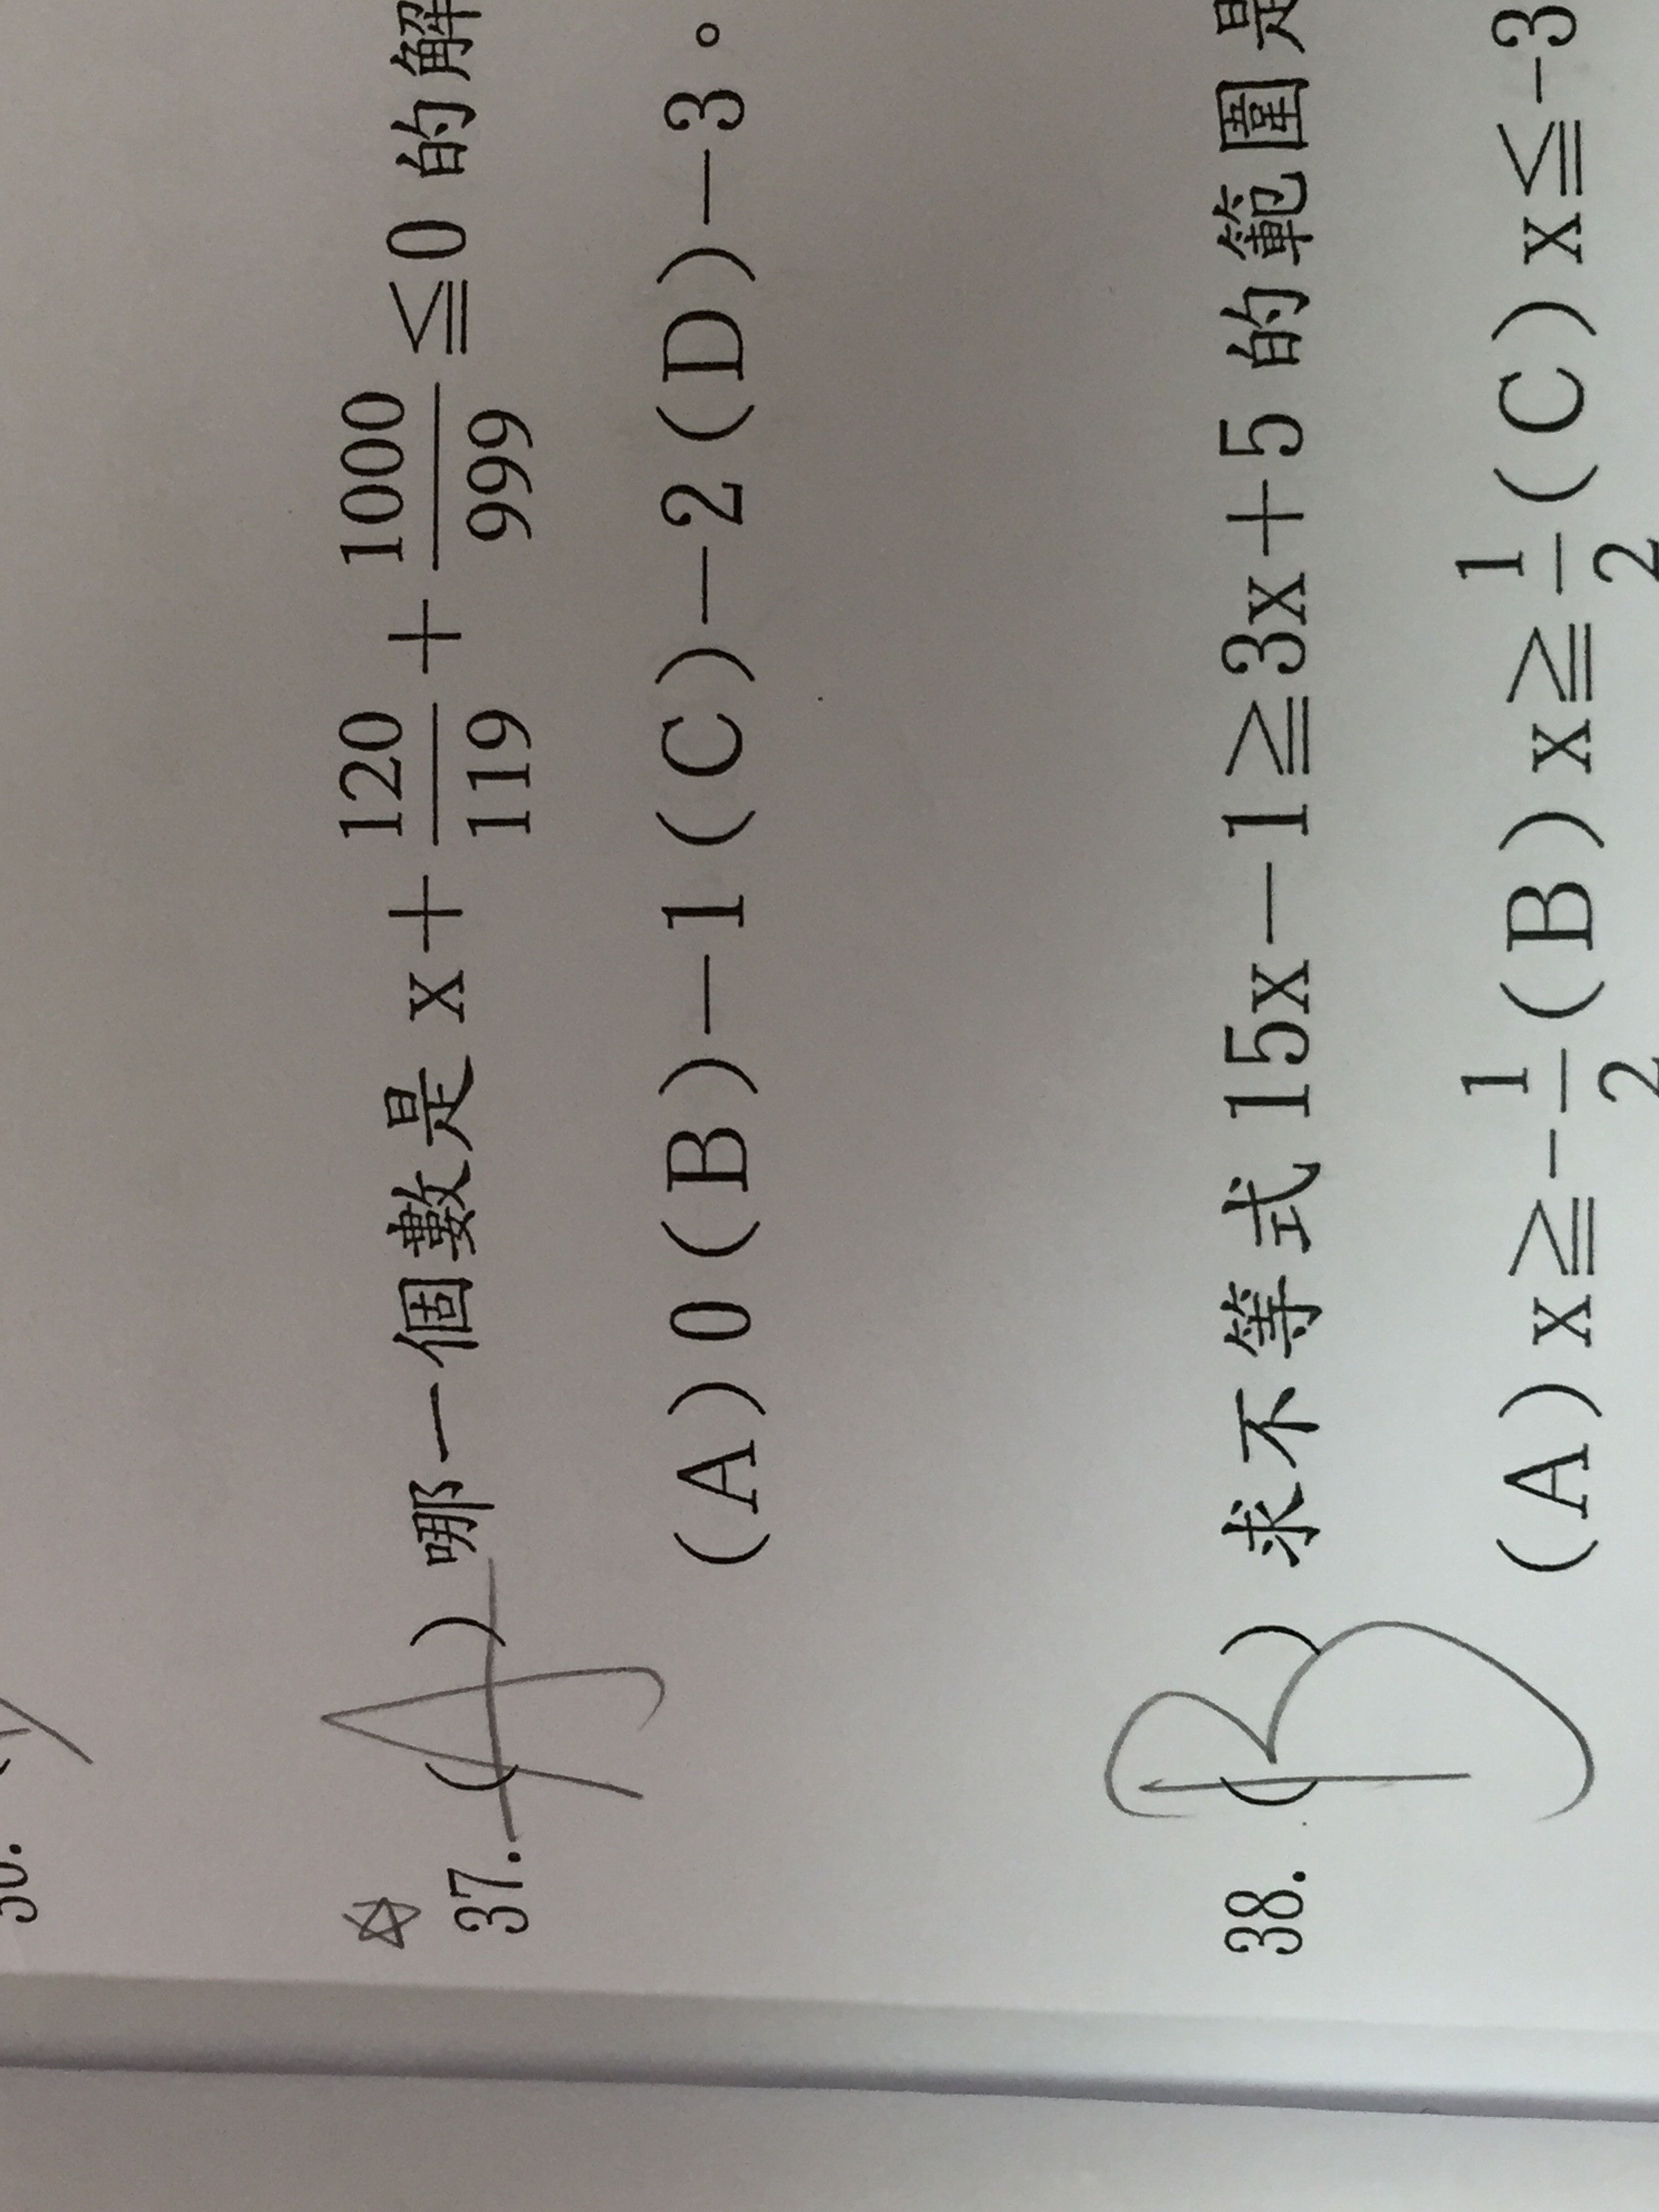 ☆
37.(A)哪一個數是 x+120/119+1000/999≦0 的解
(A)0(B)-1(C)-2(D)-3。
38.(B)求不等式15x-1≧3x+5 的範圍是
(A)x≧-1/2(B)x≧1/2(C)x≦-3